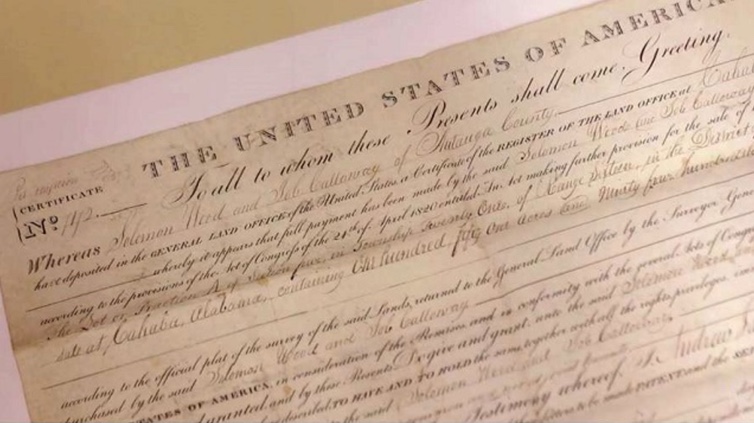 THE UNITED STATES OF AMERICA
CERTIFICATE
No. 742
To all to whom these Presents shall come, Greeting.
Whereas Solomon Wood and Job Calloway of Autauga County
have deposited in the GENERAL LAND OFFICE of the United States, a Certificate of the REGISTER OF THE LAND OFFICE at Cahaba
whereby it appears that full payment has been made by the said Solomon Wood and Job Calloway
according to the provisions of the Act of Congress of the 24th of April 1820 entitled "An Act making further provision for the sale of
The Lot or Fraction A of Section four, in Township Twenty One, of Range Sixteen, in the District
sale at Cahaba, Alabama, containing One hundred fifty One acres and Ninety four hundredths
according to the official plat of the survey of the said Lands, returned to the General Land Office by the Surveyor General
purchased by the said Solomon Wood and Job Calloway
STATES OF AMERICA, in consideration of the Premises, and in conformity with the general Acts of Congress
granted, and by these Presents Do give and grant, unto the said Solomon Wood
described, TO HAVE AND TO HOLD the same, together with all the rights, privileges,
said Solomon Wood and Job Calloway
Testimony whereof, I, Andrew
to be made PATENT, and the